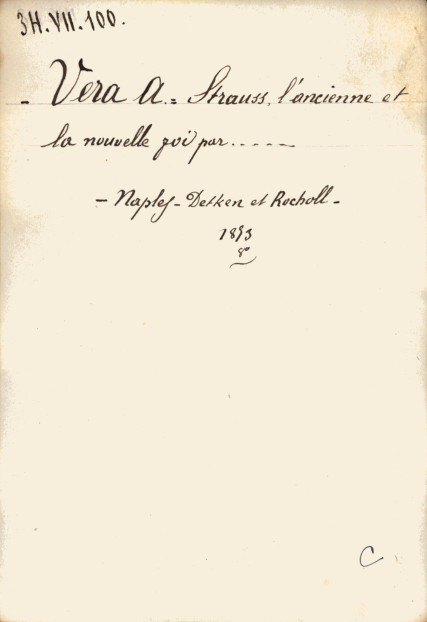 3H.VII.100.
- Vera A. = Strauss, l'ancienne et
la nouvelle foi par.....
- Naples - Detken et Rocholl -
1873
8°
C